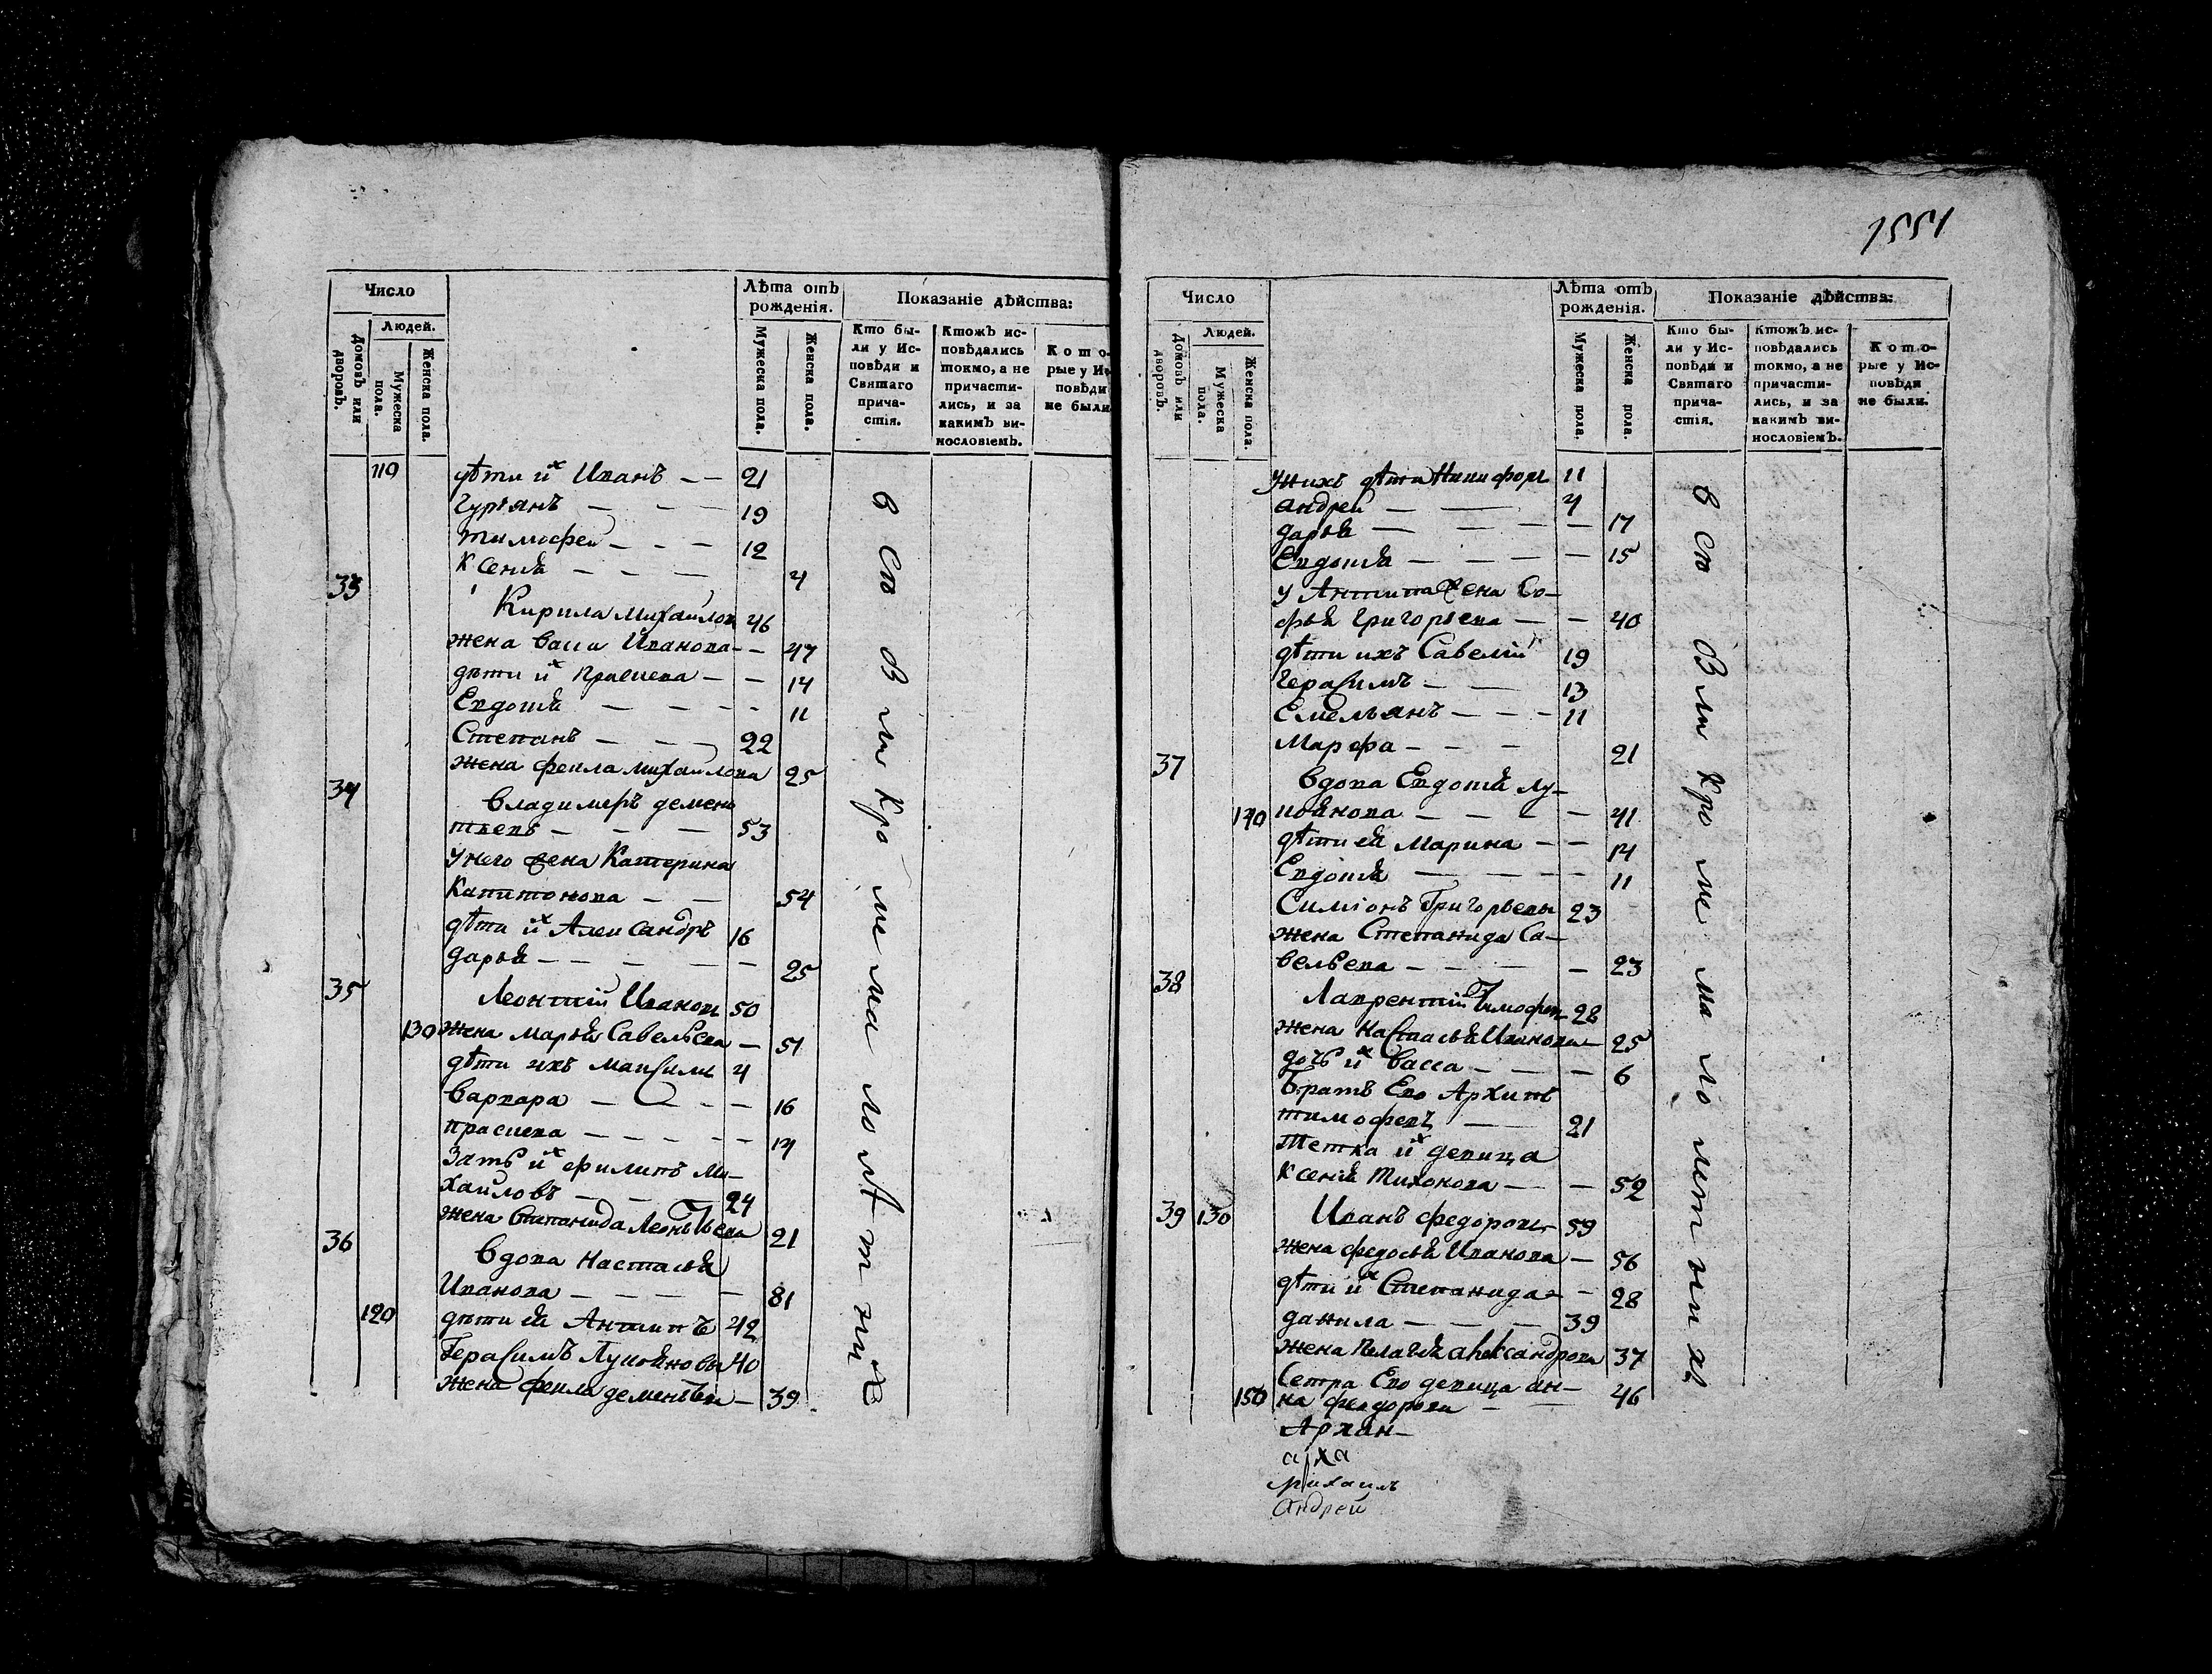 Число
Людей.
Домовъ или дворовъ.
Мужеска пола.
Женска пола.
Лѣта отъ рожденія.
Мужеска пола.
Женска пола.
Показаніе дѣйства:
Кто были у Исповѣди и Святаго причастія.
Ктожъ исповѣдались токмо, а не причастились, и за какимъ винословіемъ.
Которые у Исповѣди не были
119 дѣти их Иванъ — — 21
Гурьянъ — — — 19
тимофей — — — 12
Ксенія — — — 4
33
Кирила михайлов 46
жена васса Иванова — — 47
дѣти их Праскева — — 14
Евдотія — — — — 11
Степанъ — — — 22
жена фекла михайлова 25
34
владимеръ демен
тьевъ — — — 53
у него жена Катерина
Капитонова — — 54
дѣти их Александръ 16
дарья — — — — — 25
35
Леонтій Ивановъ 50
130 жена марья Савельева — 51
дѣти ихъ максимъ 4
варвара — — — — 16
праскева — — — — — 14
Зять их филипъ Ми—
хайловъ — — 24
жена Степанида Леонтьева 21
36
вдова Настасья
Иванова — — — — — 81
120 дѣти ея Антипъ 42
Герасимъ Лукьяновы 40
жена фекла дементьева — 39
в сѣ о в ми кро ме ма ло лѣт них
1551
Число
Людей.
Домовъ или дворовъ.
Мужеска пола.
Женска пола.
Лѣта отъ рожденія.
Мужеска пола.
Женска пола.
Показаніе дѣйства:
Кто были у Исповѣди и Святаго причастія.
Ктожъ исповѣдались токмо, а не причастились, и за какимъ винословіемъ.
Которые у Исповѣди не были.
у нихъ дѣти Никифоръ 11
андрей — — 4
дарья — — — — 17
Евдотія — — — — 15
у Антипа жена Со—
фья григорьева — — 40
дѣти ихъ Савелій 19
герасимъ — — 13
Емельянъ — — — 11
Марфа — — — 21
37
вдова Евдотія лу—
140 коянова — — — — 41
дѣти ея Марина — — 14
Евдотія — — — — 11
Симіонъ Григорьевъ 23
жена Степанида Са—
вельева — — — — 23
38
Лаврентій Тимофеев 28
жена Настасья Иванова — 25
дочь их васса — — — 6
братъ Ево Архипъ
тимофеевъ — — 21
тетка их девица
Ксенія Тихонова — — 52
39 130 Иванъ федоровъ 59
жена федосья Иванова — 56
дѣти их Степанида — — 28
данила — — — 39
жена Пелагея александрова 37
Сестра Ево девица ан— 46
150 на федорова — —
Архан—
арха
михаилъ
Андрей